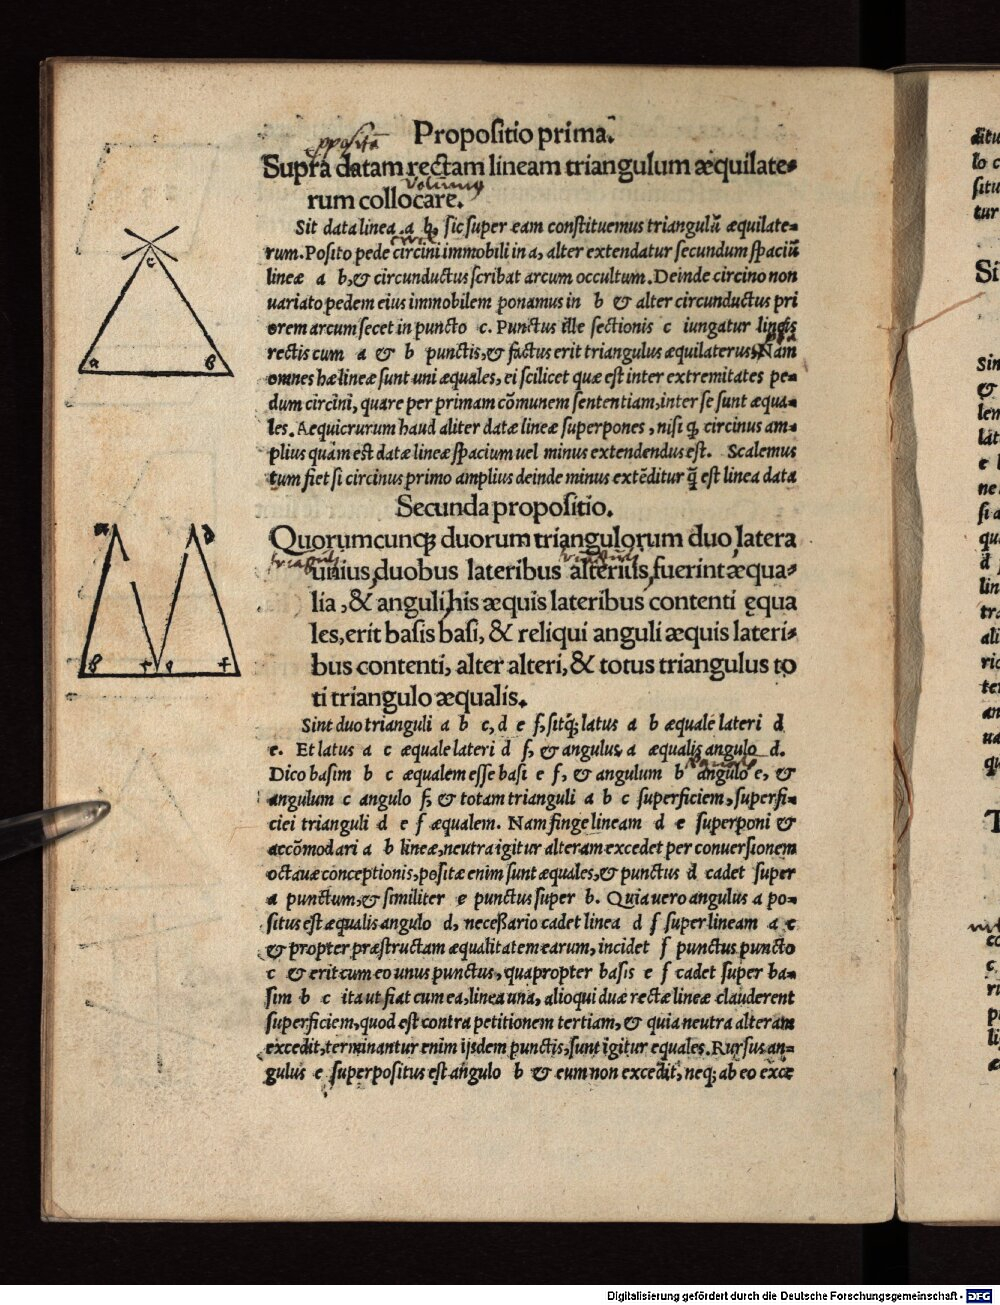 Propositio prima.
Supra datam rectam lineam triangulum æquilate-
rum collocare.
Sit data linea a b, sic super eam constituemus triangulū æquilate-
rum. Posito pede circini immobili in a, alter extendatur secundum spaciū
lineæ a b, & circunductus scribat arcum occultum. Deinde circino non
uariato pedem eius immobilem ponamus in b & alter circunductus pri
orem arcum secet in puncto c. Punctus ille sectionis c iungatur lineis
rectis cum a & b punctis, & factus erit triangulus æquilaterus. Nam
omnes hæ lineæ sunt uni æquales, ei scilicet quæ est inter extremitates pe-
dum circini, quare per primam cōmunem sententiam, inter se sunt æqua-
les. Aequicrurum haud aliter datæ lineæ superpones, nisi q, circinus am-
plius quàm est datæ lineæ spacium uel minus extendendus est. Scalemus
tum fiet si circinus primo amplius deinde minus extēditur q̄ est linea data
Secunda propositio.
Quorumcunq; duorum triangulorum duo latera
unius, duobus lateribus alterius, fuerint æqua-
lia, & anguli, his æquis lateribus contenti ęqua
les, erit basis basi, & reliqui anguli æquis lateri-
bus contenti, alter alteri, & totus triangulus to
ti triangulo æqualis.
Sint duo trianguli a b c, d e f, sitq; latus a b æquale lateri d
e. Et latus a c æquale lateri d f, & angulus a æqualis angulo d.
Dico basim b c æqualem esse basi e f, & angulum b angulo e, &
angulum c angulo f, & totam trianguli a b c superficiem, superfi-
ciei trianguli d e f æqualem. Nam finge lineam d e superponi &
accōmodari a b lineæ, neutra igitur alteram excedet per conuersionem
octauæ conceptionis, positæ enim sunt æquales, & punctus d cadet super
a punctum, & similiter e punctus super b. Quia uero angulus a po-
situs est æqualis angulo d, necessario cadet linea d f super lineam a c
& propter præstructam æqualitatem earum, incidet f punctus puncto
c & erit cum eo unus punctus, quapropter basis e f cadet super ba-
sim b c ita ut fiat cum ea, linea una, alioqui duæ rectæ lineæ clauderent
superficiem, quod est contra petitionem tertiam, & quia neutra alteram
excedit, terminantur enim ijsdem punctis, sunt igitur equales. Rursus an-
gulus e superpositus est angulo b & eum non excedit, neq; ab eo exce
c
a b
a d
b c e f
Digitalisierung gefördert durch die Deutsche Forschungsgemeinschaft - DFG